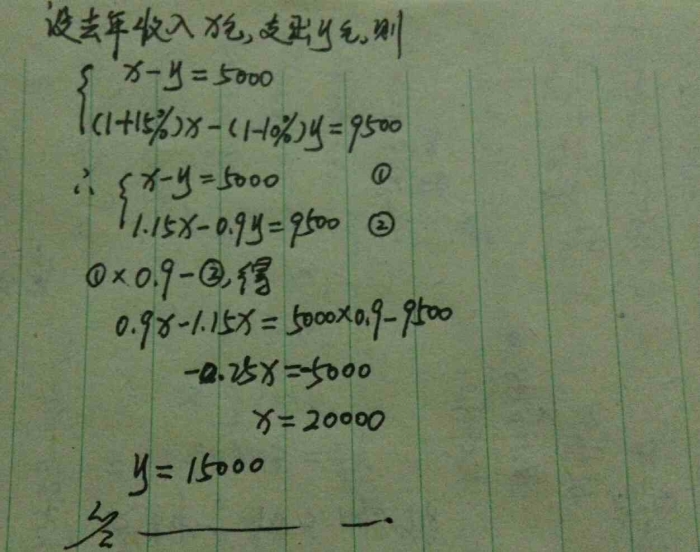 设去年收入x元,支出y元,则
{ x-y=5000
(1+15%)x-(1-10%)y=9500
∴ { x-y=5000 ①
1.15x-0.9y=9500 ②
①×0.9-②,得
0.9x-1.15x=5000×0.9-9500
-0.25x=-5000
x=20000
y=15000
答 —— —.